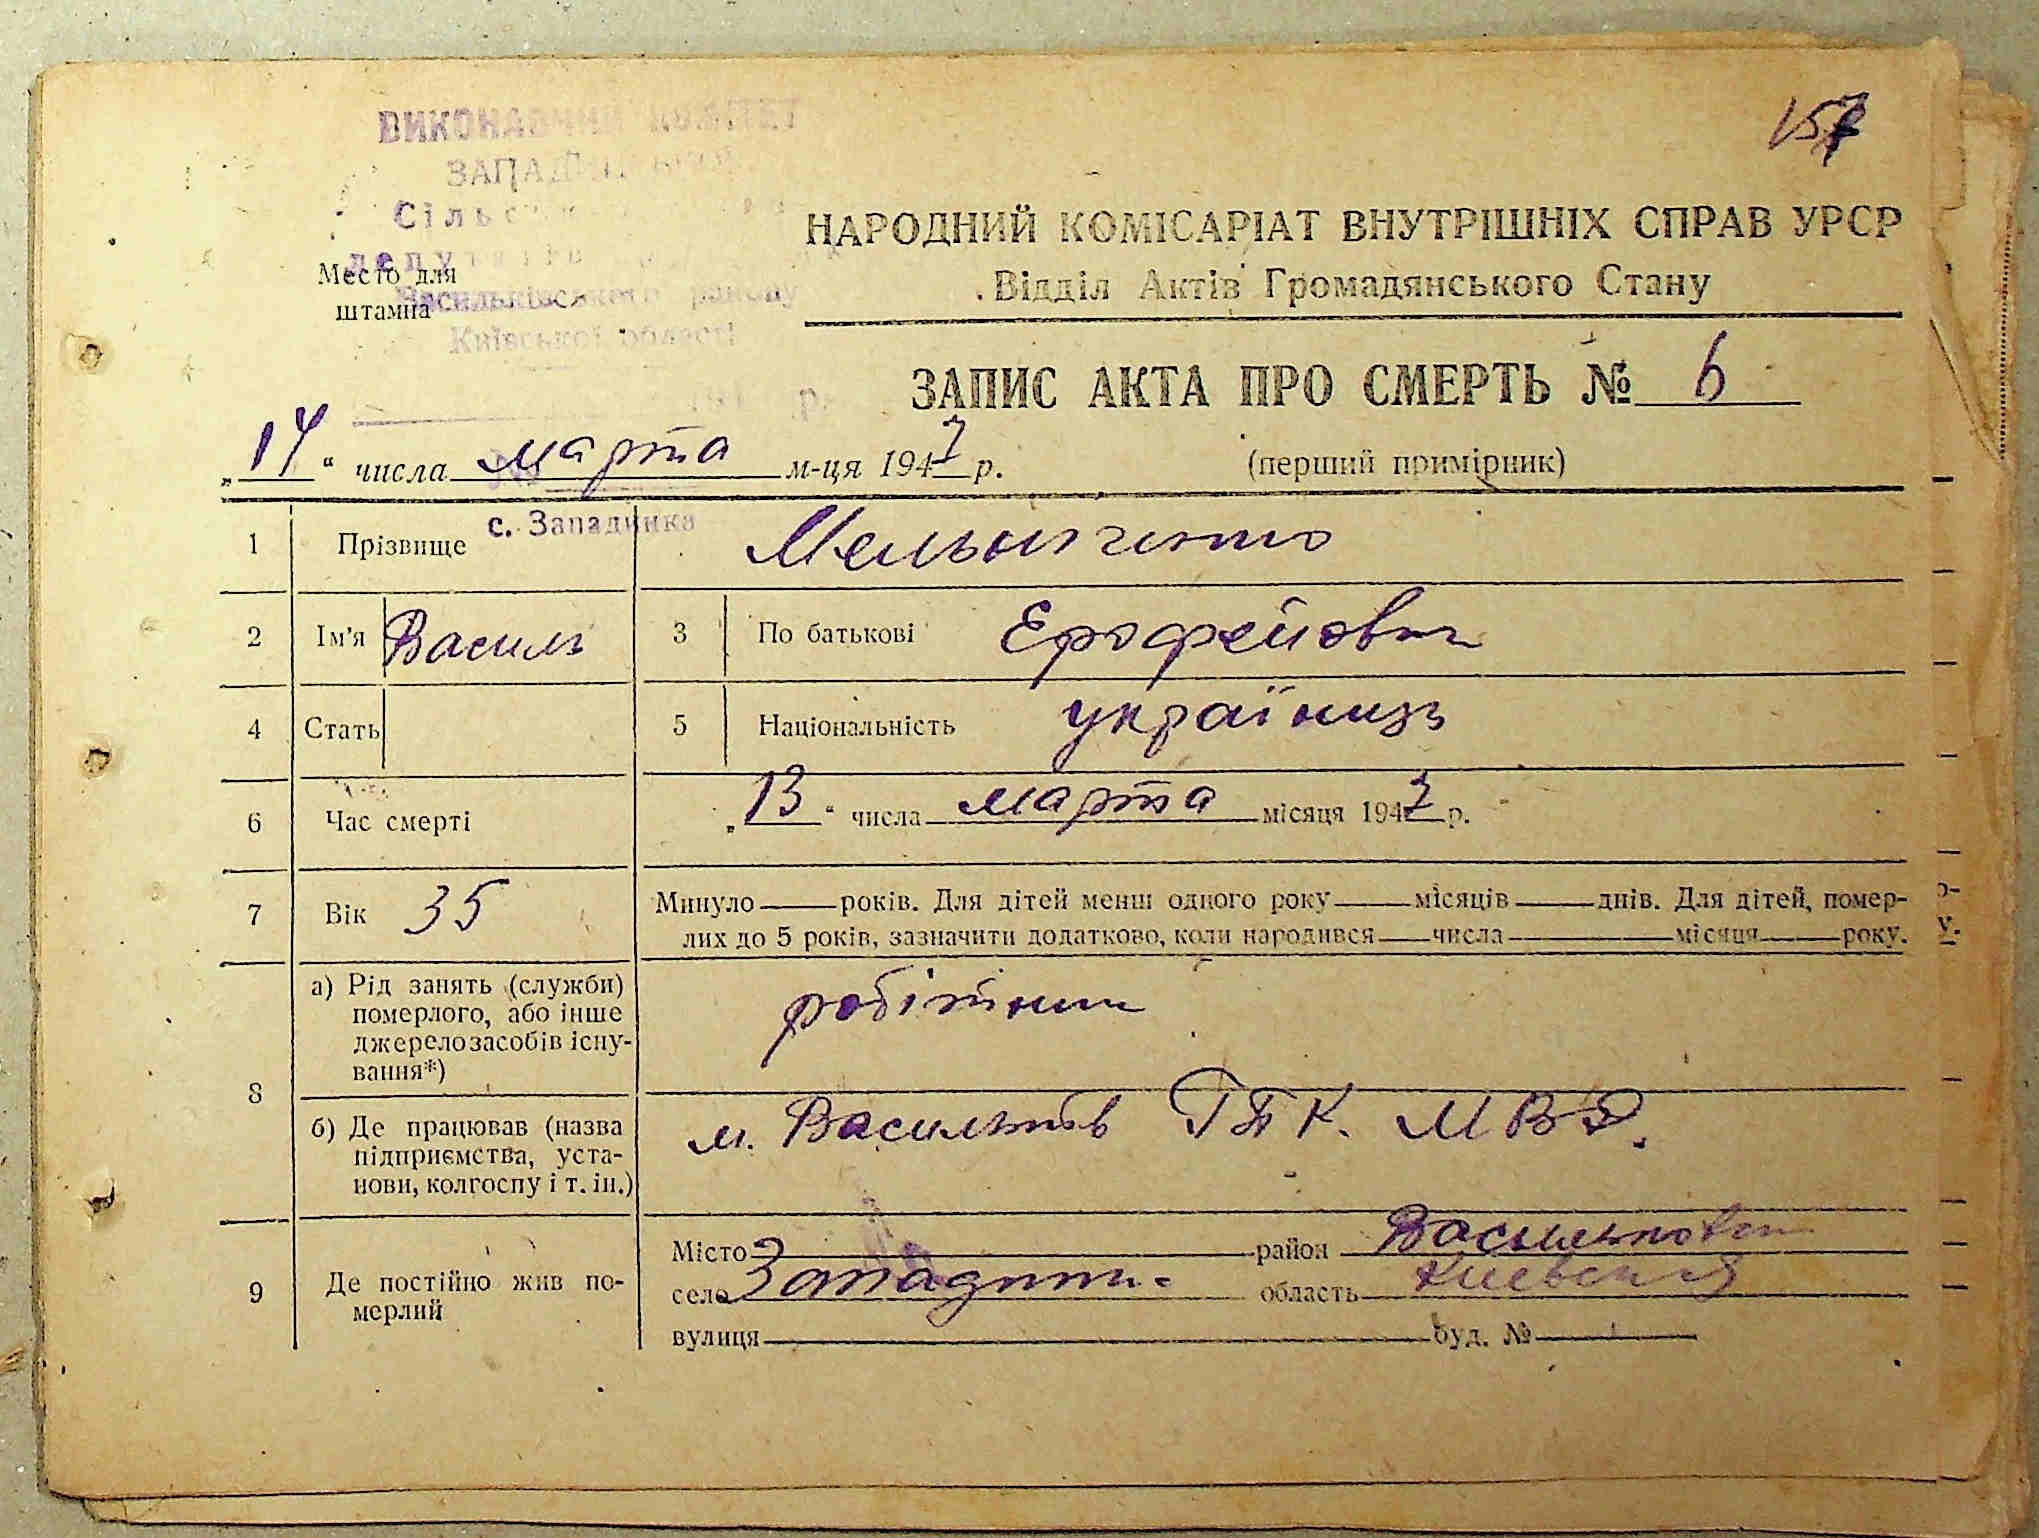 ВИКОНАВЧИЙ КОМІТЕТ
Місто для
штампа
Васильківського району
Київської області
с. Западинка
157
НАРОДНИЙ КОМІСАРІАТ ВНУТРІШНІХ СПРАВ УРСР
Відділ Актів Громадянського Стану
ЗАПИС АКТА ПРО СМЕРТЬ № 6
„14“ числа марта м-ця 1947 р.
(перший примірник)
1 Прізвище Мельниченко
2 Ім'я Василь 3 По батькові Ерофейович
4 Стать 5 Національність українець
6 Час смерті „13“ числа марта місяця 1947 р.
7 Вік 35 Минуло років. Для дітей менш одного року місяців днів. Для дітей, помер-
лих до 5 років, зазначити додатково, коли народився числа місяця року.
8 а) Рід занять (служби)
померлого, або інше
джерело засобів існу-
вання*)
робітник
б) Де працював (назва
підприємства, уста-
нови, колгоспу і т. ін.)
м. Васильків МВД.
9 Де постійно жив по-
мерлий
Місто район Васильковск
село Западинка область Киевская
вулиця буд. №